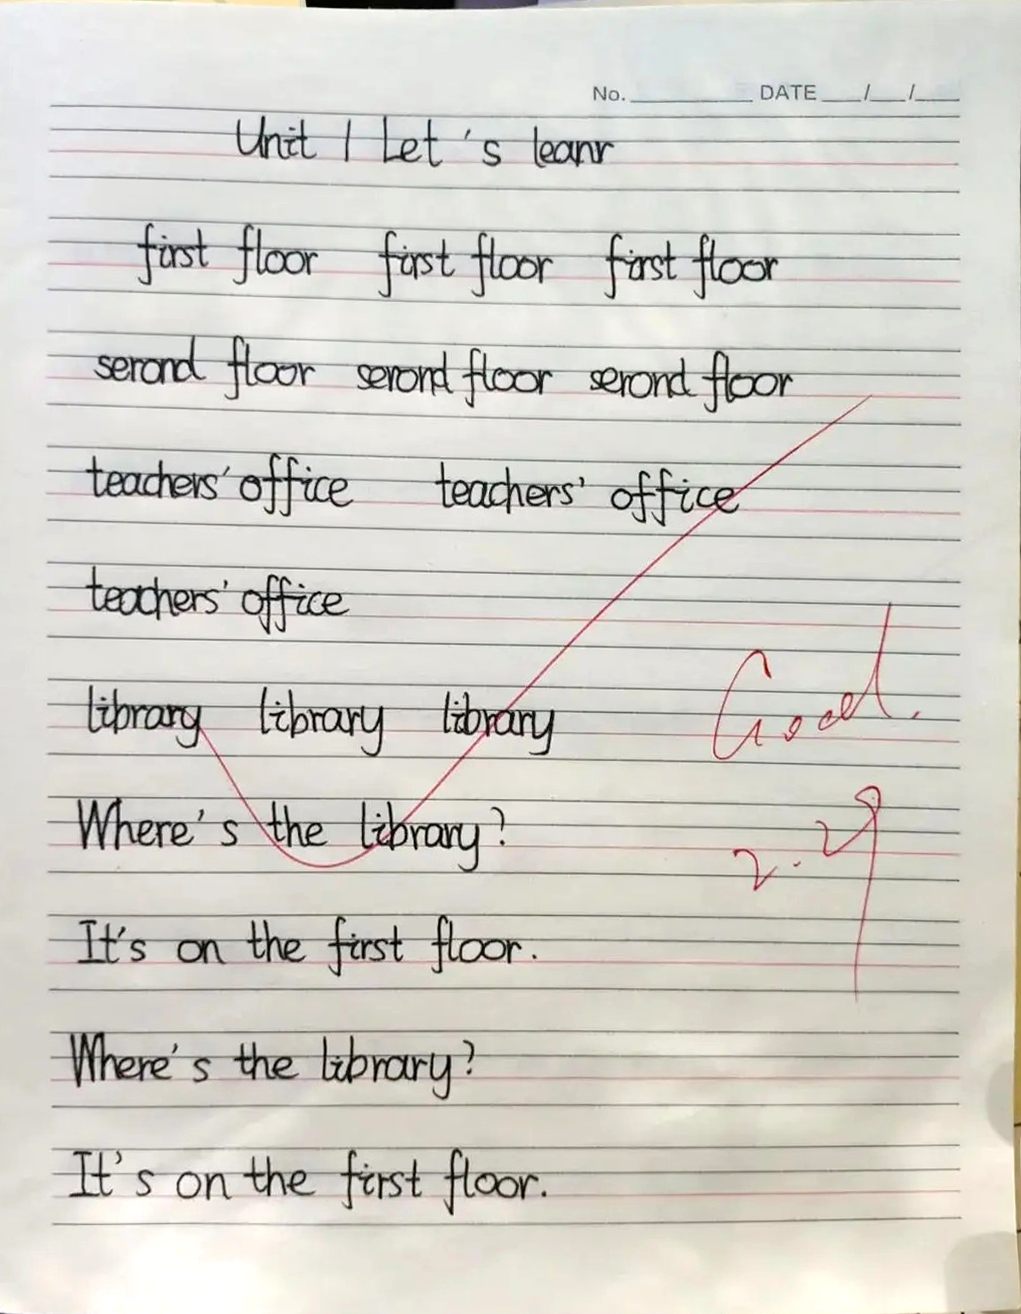 No. DATE / /
Unit 1 Let 's leanr
first floor first floor first floor
serond floor serond floor serond floor
teachers' office teachers' office
teachers' office
library library library
Good.
Where's the library?
2.29
It's on the first floor.
Where's the library?
It's on the first floor.